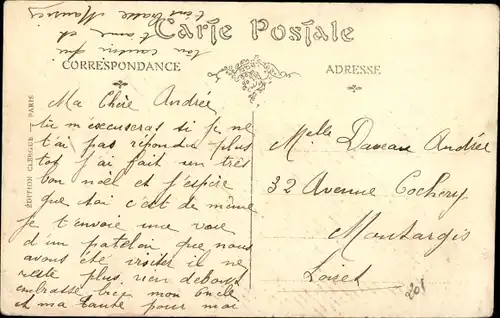 Carte Postale
CORRESPONDANCE
ADRESSE
Ma Chère Andrée
tu m'excuseras si je ne
t'ai pas répondu plus
tot j'ai fait un très
bon noël et j'espère
que toi c'est de même
je t'envoie une vue
d'un patelin que nous
avons été visiter il ne
reste plus rien debout
embrasse bien mon oncle
et ma tante pour moi
ton cousin qui
t'aime et
Melle Daveau Andrée
32 Avenue Cochery
Montargis
Loiret
ÉDITION CLERGUE — PARIS